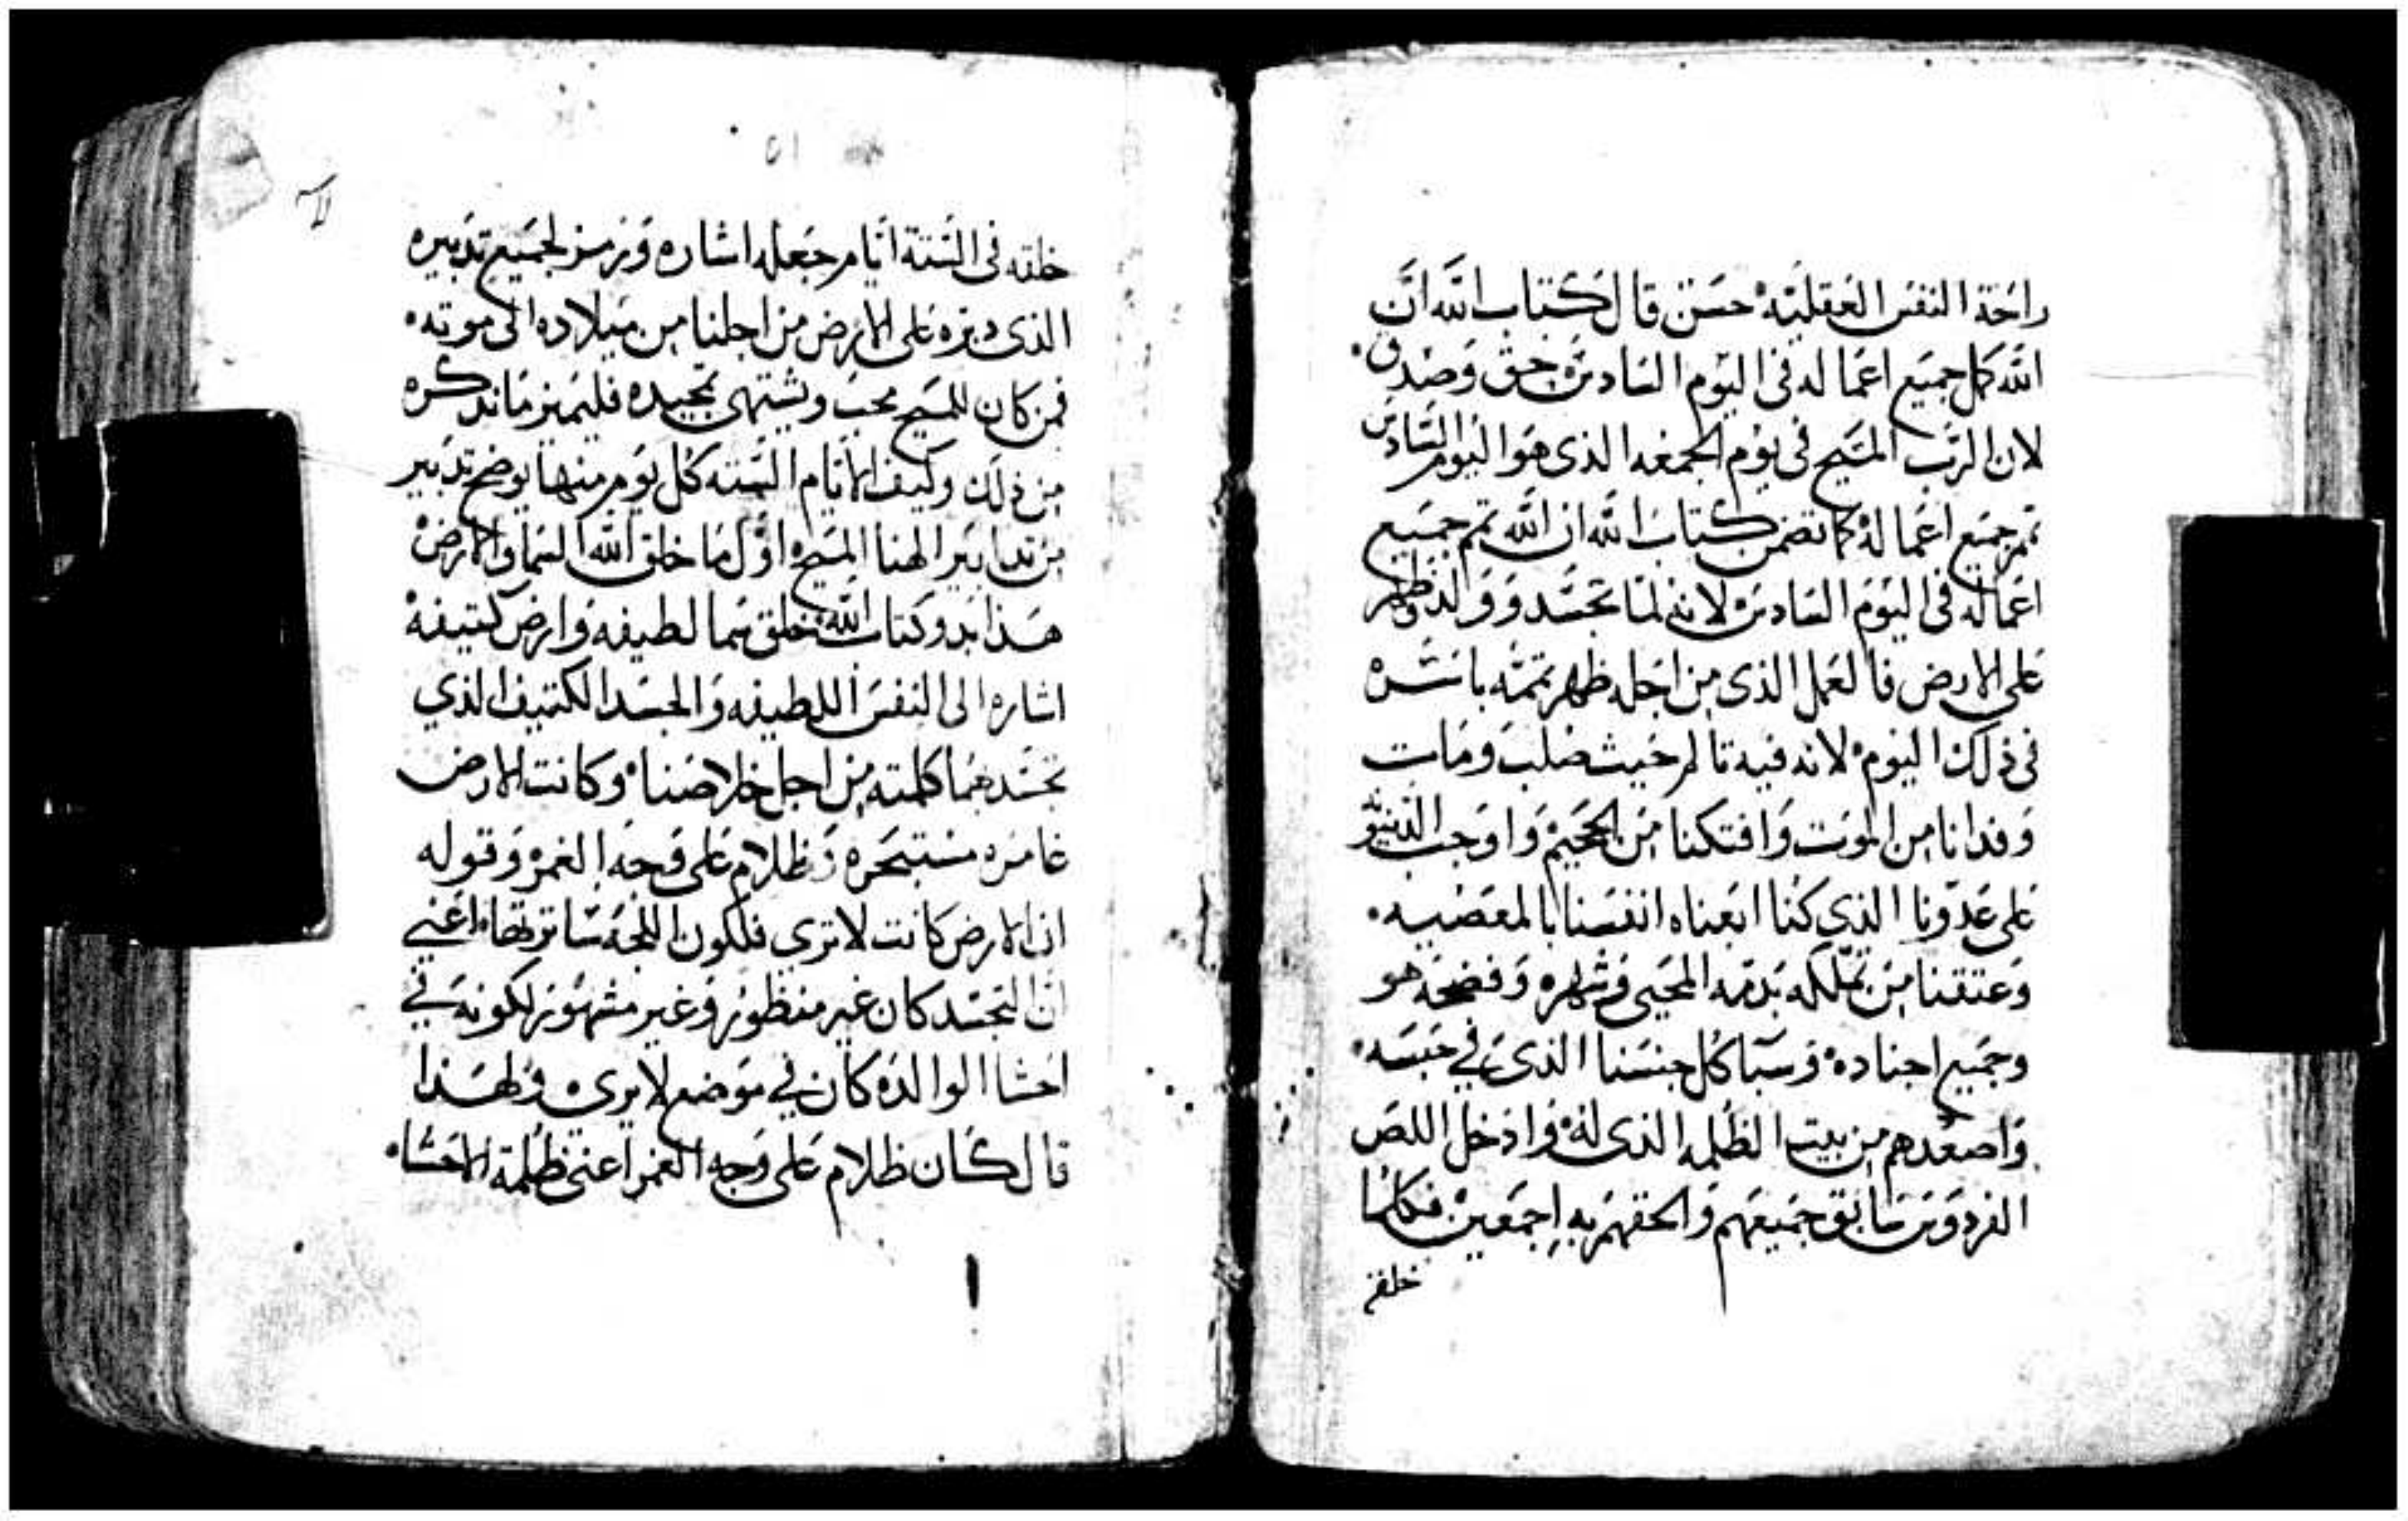 راحة النفس العقليه حسن قال كتاب الله ان
الله كمل جميع اعماله في اليوم السادس حق وصدق
لان الرب المسيح في يوم الجمعه الذي هو اليوم السادس
تمم جميع اعماله كما تضمن كتاب الله ان الله تمم جميع
اعماله في اليوم السادس لانه لما تجسد وولد وظهر
على الارض فالعمل الذي من اجله ظهر تممه باسره
في ذلك اليوم لانه فيه تالم حيث صلب ومات
وفدانا من الموت وافتكنا من الجحيم واوجب
على عدونا الذي كنا ابعناه انفسنا بالمعصيه
وعتقنا من تملكه بدمه المحيي وشهره وفضحه هو
وجميع اجناده وسبا كل جنسنا الذي في حبسه
واصعدهم من بيت الظلمه الذي له وادخل اللص
الفردوس سابق جميعهم والحقهم به اجمعين فكلما
خلقه
٥١
خلقه في الستة ايام جعله اشاره ورمز لجميع تدبيره
الذي دبره على الارض من اجلنا من ميلاده الى موته
فمن كان للمسيح محب ويشتهي تمجيده فليميز ما نذكره
من ذلك وكيف الايام السته كل يوم منها يوضح تدبير
من تدابير الهنا المسيح اول ما خلق الله السما والارض
هذا بدو كتاب الله خلق سما لطيفه وارض كتيفه
اشاره الى النفس اللطيفه والجسد الكتيف الذي
تجسدهما كلمته من اجل خلاصنا وكانت الارض
غامره مستبحره وظلام على وجه الغمر وقوله
ان الارض كانت لا ترى فلكون اللجه ساترتها اعني
ان التجسد كان غير منظور وغير مشهور لكونه في
احشا الوالده كان في موضع لا يرى ولهذا
قال كان ظلام على وجه الغمر اعني ظلمة الاحشا